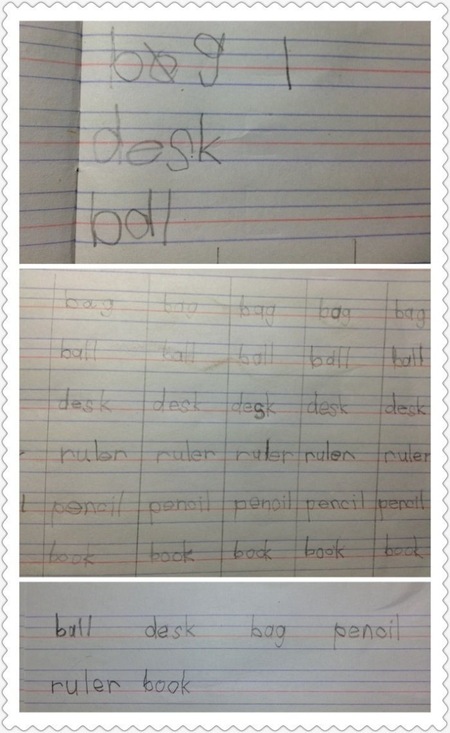 bag
desk
ball
bag bag bag bag bag
ball ball ball ball ball
desk desk desk desk desk
ruler ruler ruler ruler ruler
pencil pencil pencil pencil pencil
book book book book book
ball desk bag pencil
ruler book